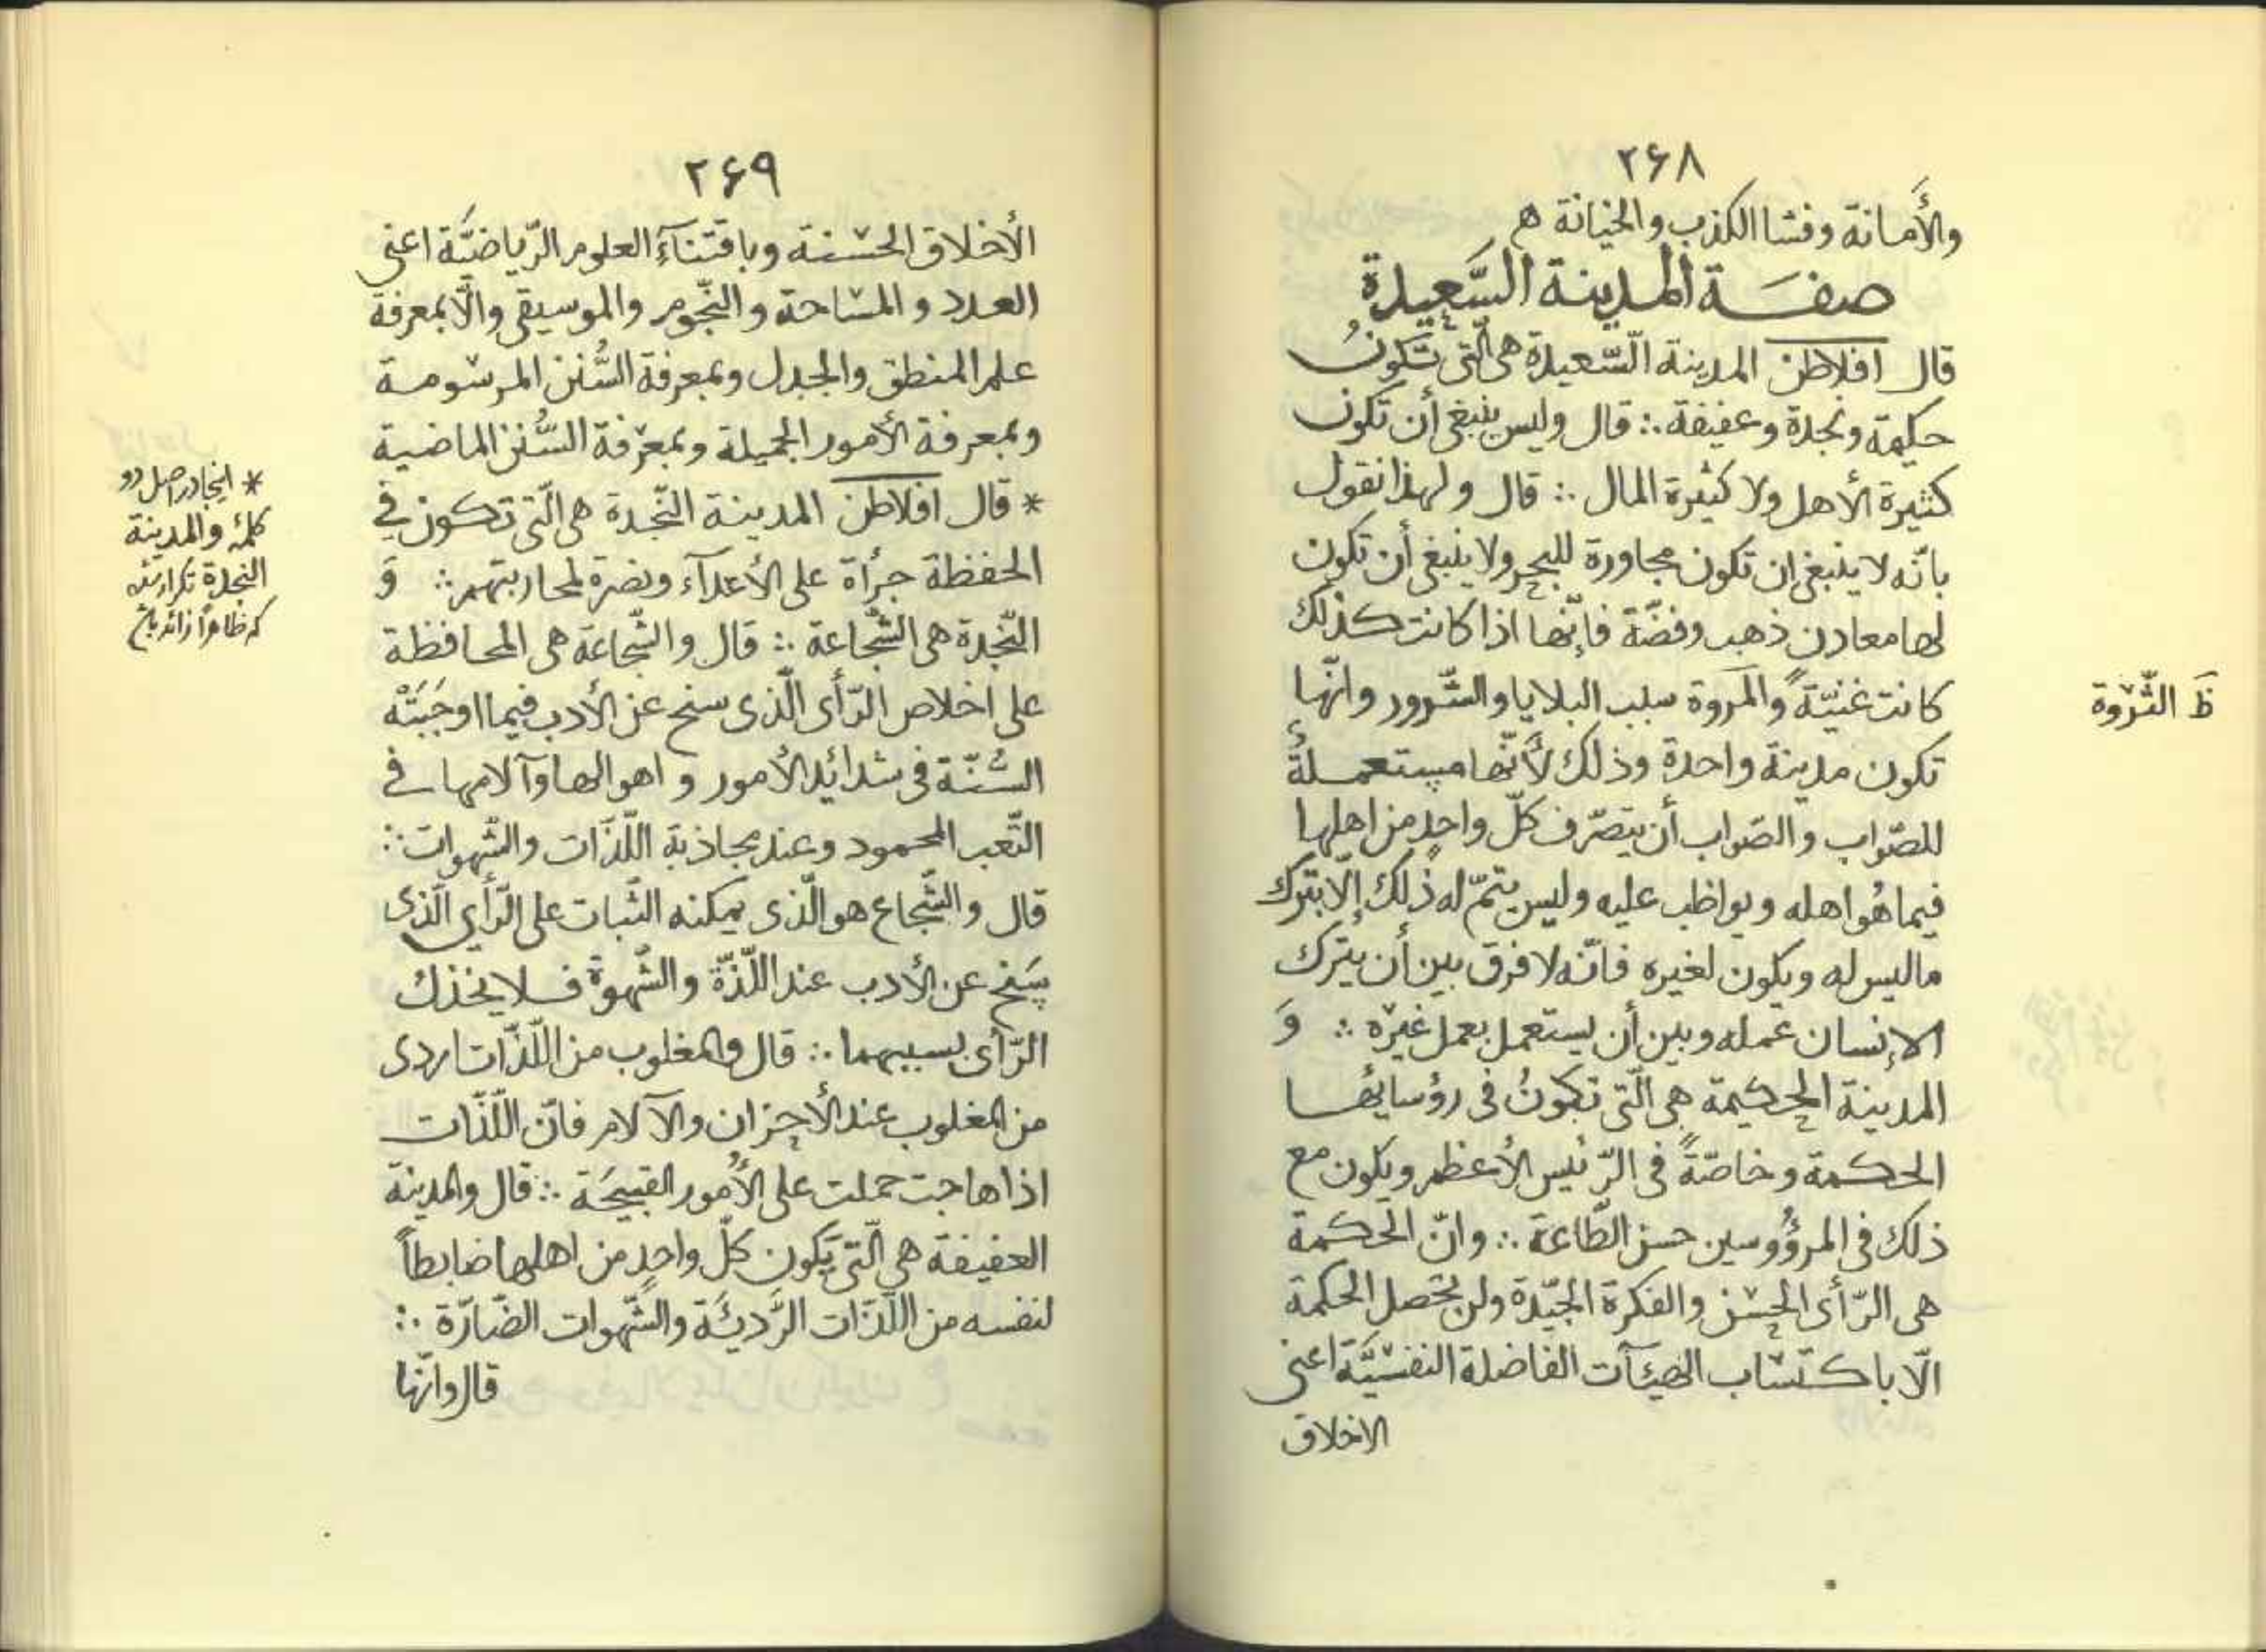 ٢۶٨
والأَمانة وفشا الكذب والخيانة ه
صفـة المدينة السَّعيدة
قال افلاطن المدينة السّعيدة هى الّتى تكونُ
حكيمة ونجدة وعفيفة ∴ قال وليس ينبغى أن تكون
كثيرة الأهل ولا كثيرة المال ∴ قال ولهذا نقول
بانّه لا ينبغى ان تكون مجاورة للبحر ولا ينبغى أن تكون
لها معادن ذهب وفضّة فإنّها اذا كانت كذلك
كانت غنيّةً والمَروة سبب البلايا والشّرور وانّها
ظَ الثَّرْوة
تكون مدينة واحدة وذلك لأنّها مستعملةٌ
للصّواب والصّواب أن يتصرّف كلّ واحدٍ من اهلها
فيما هُو اهله ويواظب عليه وليس يتمّ له ذٰلك إلّا بترك
ما ليس له ويكون لغيره فانّه لا فرق بين أن يترك
الإنسان عمله وبين أن يستعمل بعمل غيره ∴ وَ
المدينة الحكيمة هى الّتى تكونُ فى رؤسائها
الحكمة وخاصّةً فى الرّئيس الأعظم ويكون مع
ذلك فى المرؤوسين حسن الطّاعة ∴ وانّ الحكمة
هى الرّأى الحسن والفكرة الجيّدة ولن تحصل الحكمة
الّا باكتساب الهيئآت الفاضلة النفسيّة اعنى
الاخلاق
٢۶٩
الأخلاق الحسنة وباقتنآءِ العلوم الرّياضيَّة اعنى
العدد والمساحة والنّجوم والموسيقى والّا بمعرفة
علم المنطق والجدل وبمعرفة السُّنن المرسومة
وبمعرفة الأمور الجميلة وبمعرفة السُّنن الماضية
* قال افلاطن المدينة النّجدة هى الّتى تكون فى
* اینجا در اصل دو
كلمۀ والمدينة
النجدة تكرار شده
كه ظاهراً زائد باشد
الحفظة جرأة على الأعدآء ونصرة لمحاربتهم ∴ وَ
النّجدة هى الشّجاعة ∴ قال والشّجاعة هى المحافظة
على اخلاص الرّأى الّذى سنح عن الأدب فيما اوجَبَتْه
السُّنّة فى شدائد الأمور واهوالها وآلامها فى
التّعب المحمود وعند مجاذبة اللّذّات والشّهوات ∴
قال والشّجاع هو الّذى يمكنه الثّبات على الرّأي الّذى
يسَنح عن الأدب عند اللّذّة والشّهوة فلا يخذك
الرّأى بسببهما ∴ قال والمغلوب من اللّذّات اردى
من المغلوب عند الأحزان والآلام فانّ اللّذّات
اذا هاجت حملت على الأُمور القبيحَة ∴ قال والمدينة
العفيفة هى الّتى يَكون كلّ واحدٍ من اهلها ضابطاً
لنفسه من اللّذّات الرَّديئَة والشّهوات الضّارّة ∴
قال وانّها